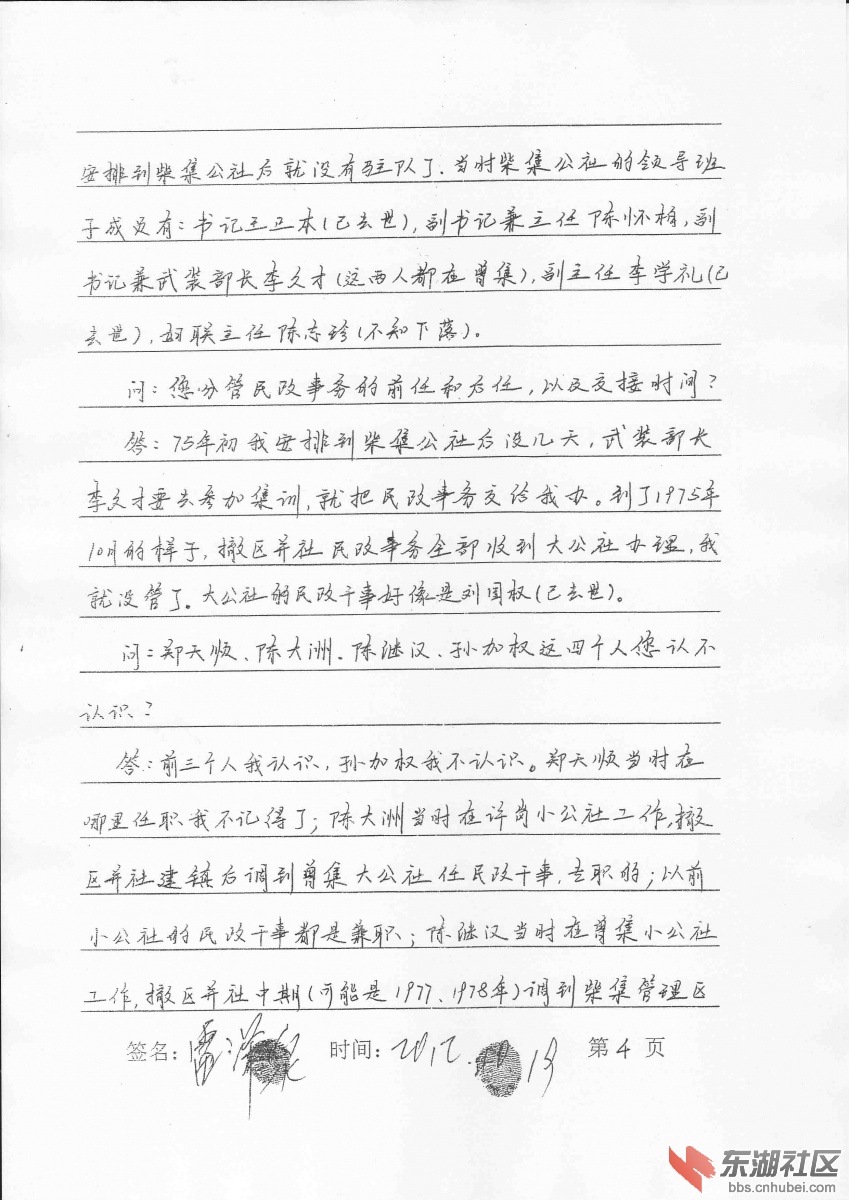 安排到柴集公社后就没有驻队了.当时柴集公社的领导班
子成员有:书记王卫本(已去世),副书记兼主任陈怀柏,副
书记兼武装部长李久才(这两人都在曾集),副主任李学礼(已
去世),妇联主任陈志珍(不知下落)。
问:您分管民政事务的前任和后任,以及交接时间?
答:75年初我安排到柴集公社后没几天,武装部长
李久才要去参加集训,就把民政事务交给我办。到了1975年
10月的样子,撤区并社民政事务全部收到大公社办理,我
就没管了。大公社的民政干事好像是刘国权(已去世)。
问:郑天顺、陈大洲、陈继汉、孙加权这四个人您认不
认识?
答:前三个人我认识,孙加权我不认识。郑天顺当时在
哪里任职我不记得了;陈大洲当时在许岗小公社工作,撤
区并社建镇后调到曾集大公社任民政干事,专职的;以前
小公社的民政干事都是兼职;陈继汉当时在曾集小公社
工作,撤区并社中期(可能是1977、1978年)调到柴集管理区
签名: 时间:2012. 第4页
东湖社区
bbs.cnhubei.com